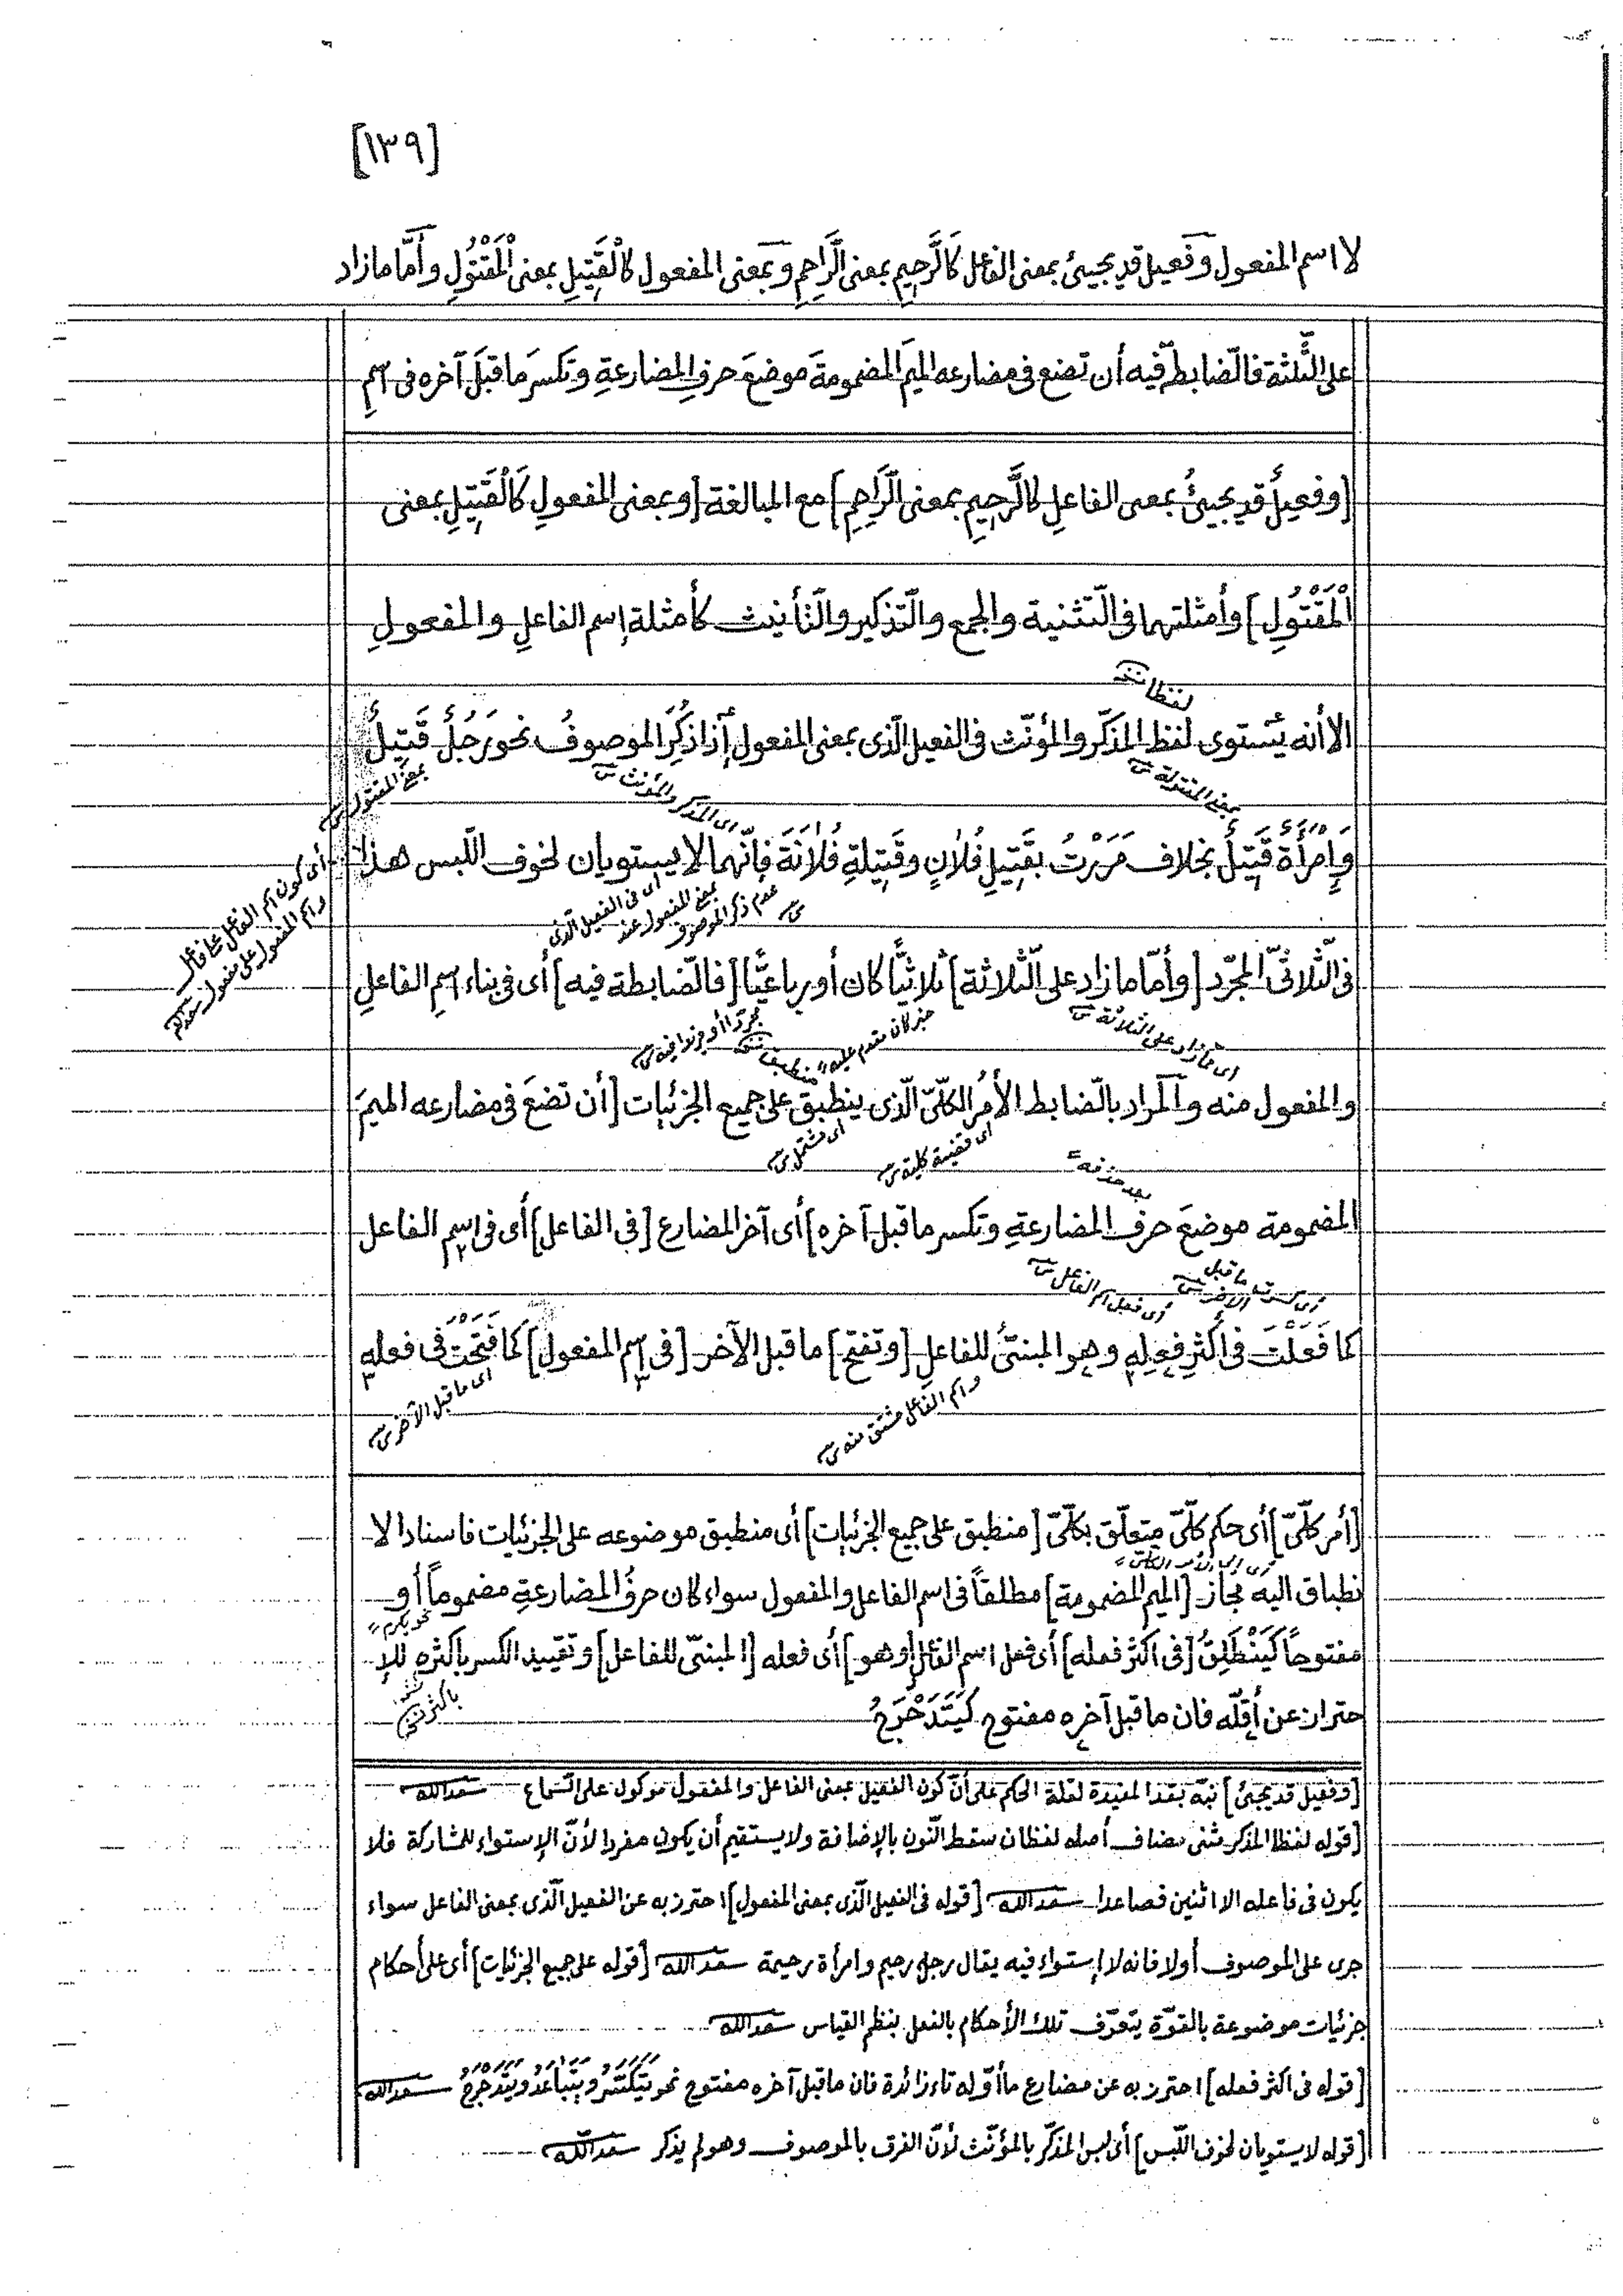 [١٣٩]
لا اسم المفعول وفعيل قد يجيئ بمعنى الفاعل كَالرَّحِيمِ بمعنى الرَّاحِمِ وبمعنى المفعول كَالْقَتِيلِ بمعنى الْمَقْتُولِ وأمَّا مازاد
على الثَّلثة فالضّابط فيه أن تضع فى مضارعه الميمَ المضمومةَ موضعَ حرفِ المضارعةِ وتكسرَ ما قبلَ آخره فى اسمِ
[وفعيلٌ قد يجيئُ بمعنى الفاعلِ كالرَّحِيمِ بمعنى الرَّاحِمِ] مع المبالغة [وبمعنى المفعولِ كَالْقَتِيلِ بمعنى
الْمَقْتُولِ] وأمثلتهما فى التّثنية والجمع والتّذكير والتّأنيث كأمثلة إسم الفاعلِ والمفعولِ
لفظا نخـ
الا أنه يَستوى لفظ المذكّر والمؤنّث فى الفعيل الّذى بمعنى المفعول إذا ذُكِرَ الموصوفُ نحو رَجُلٌ قَتِيلٌ
بمعنى المقتولة
اى المذكر والمؤنث
بمعنى المقتول
وَإِمْرَأَةٌ قَتِيلٌ بخلاف مَرَرْتُ بِقَتِيلِ فُلاٰنٍ وقَتِيلَةِ فُلاٰنَةَ فإنّهما لا يستويان لخوف اللّبس هذا
اى فى الفعيل الّذى
بمعنى المفعول عند
عدم ذكر الموصوف
أى كون اسم الفاعل على فاعل
واسم المفعول على مفعول سعدالله
فى الثّلاثىّ المجرّد [وأمّا ما زاد على الثّلاثة] ثلاثيًّا كان أو رباعيًّا [فالضّابطة فيه] أى فى بناء اسمِ الفاعلِ
اى مازاد على الثلاثة
خبر كان مقدم عليه
مجرّدا أو مزيدا فيه
منطبق نخـ
والمفعول منه والمراد بالضّابط الأمرُ الكلّىّ الّذى ينطبق على جميع الجزئيات [أن تضعَ فى مضارعه الميمَ
اى قضية كلية
اى مشتمل
بعد حذفه
المضمومة موضعَ حرف المضارعةِ وتكسر ما قبل آخره] أى آخر المضارع [فى الفاعل] أى فى اسم الفاعل
أى كسرت ما قبل الآخر
أى فعل اسم الفاعل
كما فَعَلْتَ فى أكثرِ فِعلِهِ وهو المبنىُّ للفاعلِ [وتفتح] ما قبل الآخر [فى اسم المفعول] كَمَا فَتَحْتَ فى فعله
واسم الفاعل مشتق منه
اى ما قبل الآخر
[أمر كلّىّ] أى حكم كلّىّ متعلّق بكلّىّ [منطبق على جميع الجزئيات] أى منطبق موضوعه على الجزئيات فاسناد الا
اى الى الأمر الكلى
نطباق اليه مجاز [الميم المضمومة] مطلقاً فى اسم الفاعل والمفعول سواء كان حرفُ المضارعةِ مضموماً أو
نحو يكرم
مفتوحاً كَيَنْطَلِقُ [فى اكثر فعله] أى فعل اسم الفاعل [وهو] أى فعله [المبنىّ للفاعل] وتقييد الكسر بأكثره للإ
باكثر نخـ
حتراز عن أقلّه فان ما قبل آخره مفتوح كَيَتَدَحْرَجُ
[وفعيل قد يجيئ] نبّه بقد المفيدة لقلة الحكم على أنّ كون الفعيل بمعنى الفاعل والمفعول موكول على السّماع سعدالله
[قوله لفظا المذكر مثنى مضاف أصله لفظان سقط النّون بالإضافة ولا يستقيم أن يكون مفردا لأنّ الإستواء للمشاركة فلا
يكون فى فاعله الا اثنين فصاعدا سعدالله [قوله فى الفعيل الّذى بمعنى المفعول] احترز به عن الفعيل الّذى بمعنى الفاعل سواء
جرى على الموصوف أولا فانه لا إستواء فيه يقال رجل رحيم وامرأة رحيمة سعدالله [قوله على جميع الجزئيات] أى على أحكام
جزئيات موضوعة بالقوّة يتعرّف تلك الأحكام بالفعل بنظم القياس سعدالله
[قوله فى اكثر فعله] احترز به عن مضارع ما أوّله تاء زائدة فان ما قبل آخره مفتوح نحو يَتَكَسَّرُ ويَتَبَاعَدُ ويَتَدَحْرَجُ سعدالله
[قوله لا يستويان لخوف اللّبس] أى لبس المذكّر بالمؤنّث لأنّ الفرق بالموصوف وهو لم يذكر سعدالله